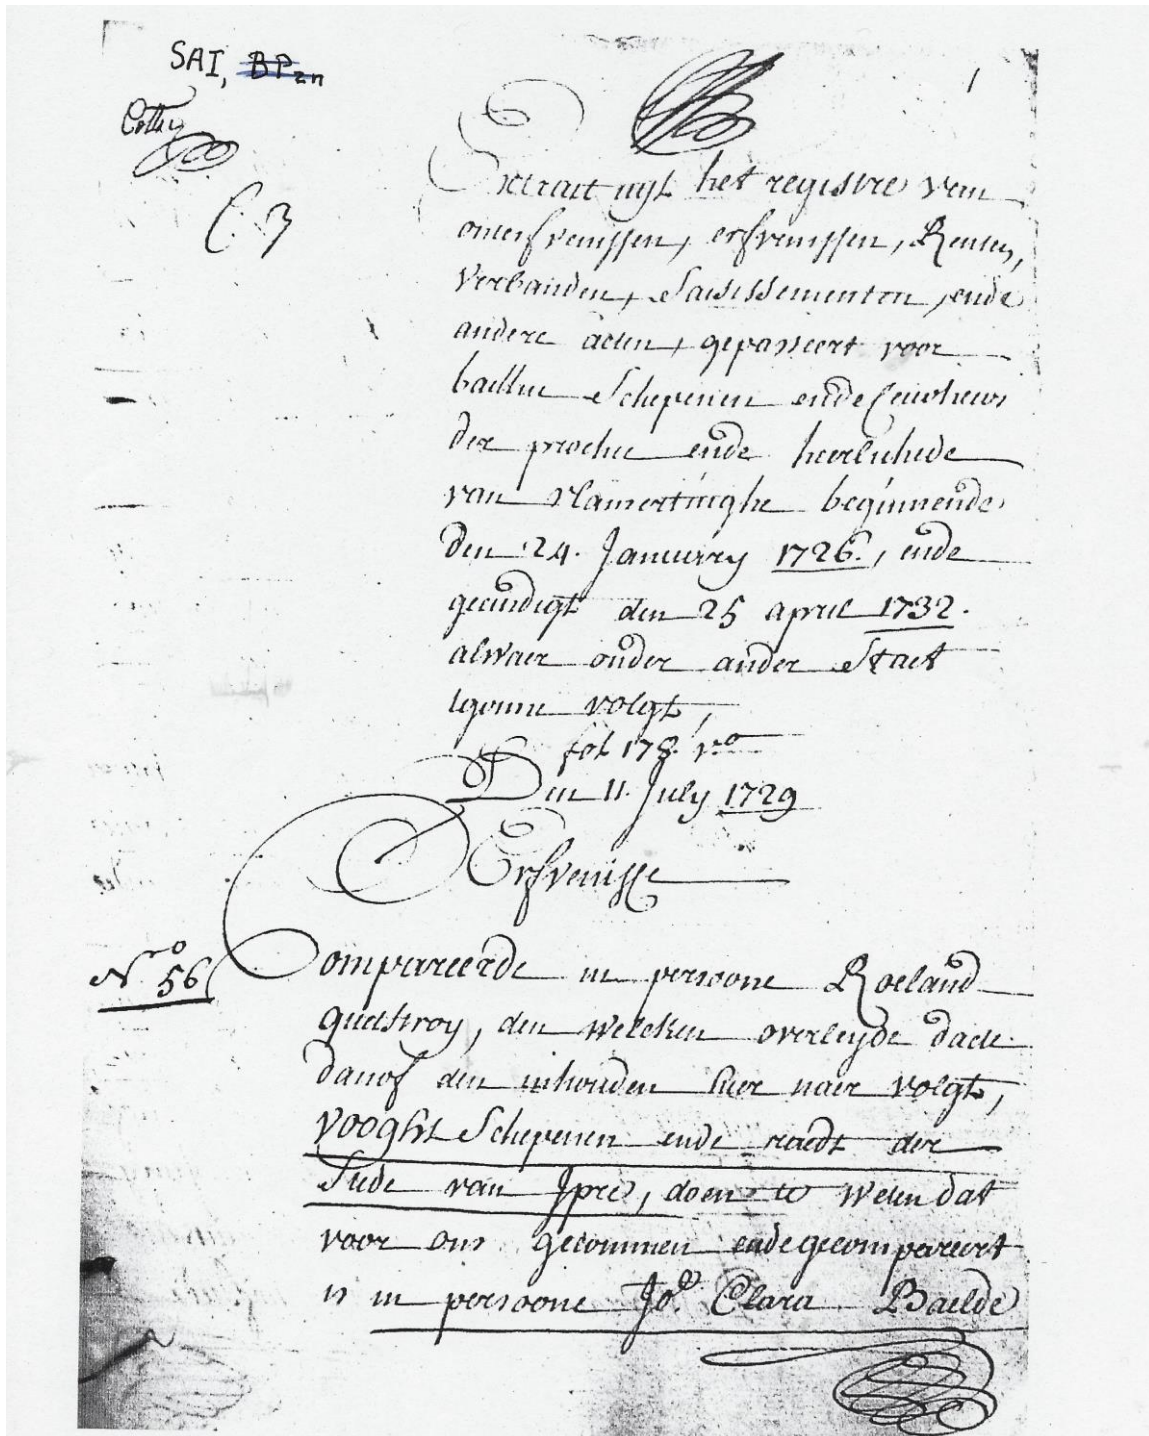 SAI, BP zn
1
C. 3
Extrait uyt het registre van
onterfvenissen, erfvenissen, Renten,
Verbanden, Saisissementen, ende
andere acten, gepasseert voor
bailliu Schepenen ende Ceurheers
der prochie ende heerlichede
van Vlamertinghe beginnende
den 24. January 1726., ende
geeindigt den 25 april 1732.
alwaer onder ander Staet
tgonne volgt,
fol 178. vo
Den 11. July 1729
Erfvenisse
Nro 56
Compareerde in persoone Roeland
Quetstroy, den welcken overleyde dacte
danof den inhouden hier naer volgt,
Vooght Schepenen ende raedt der
Stede van Jpre, doen te weten dat
voor ons gecommen ende gecompareert
is in persoone Joe. Clara Baelde